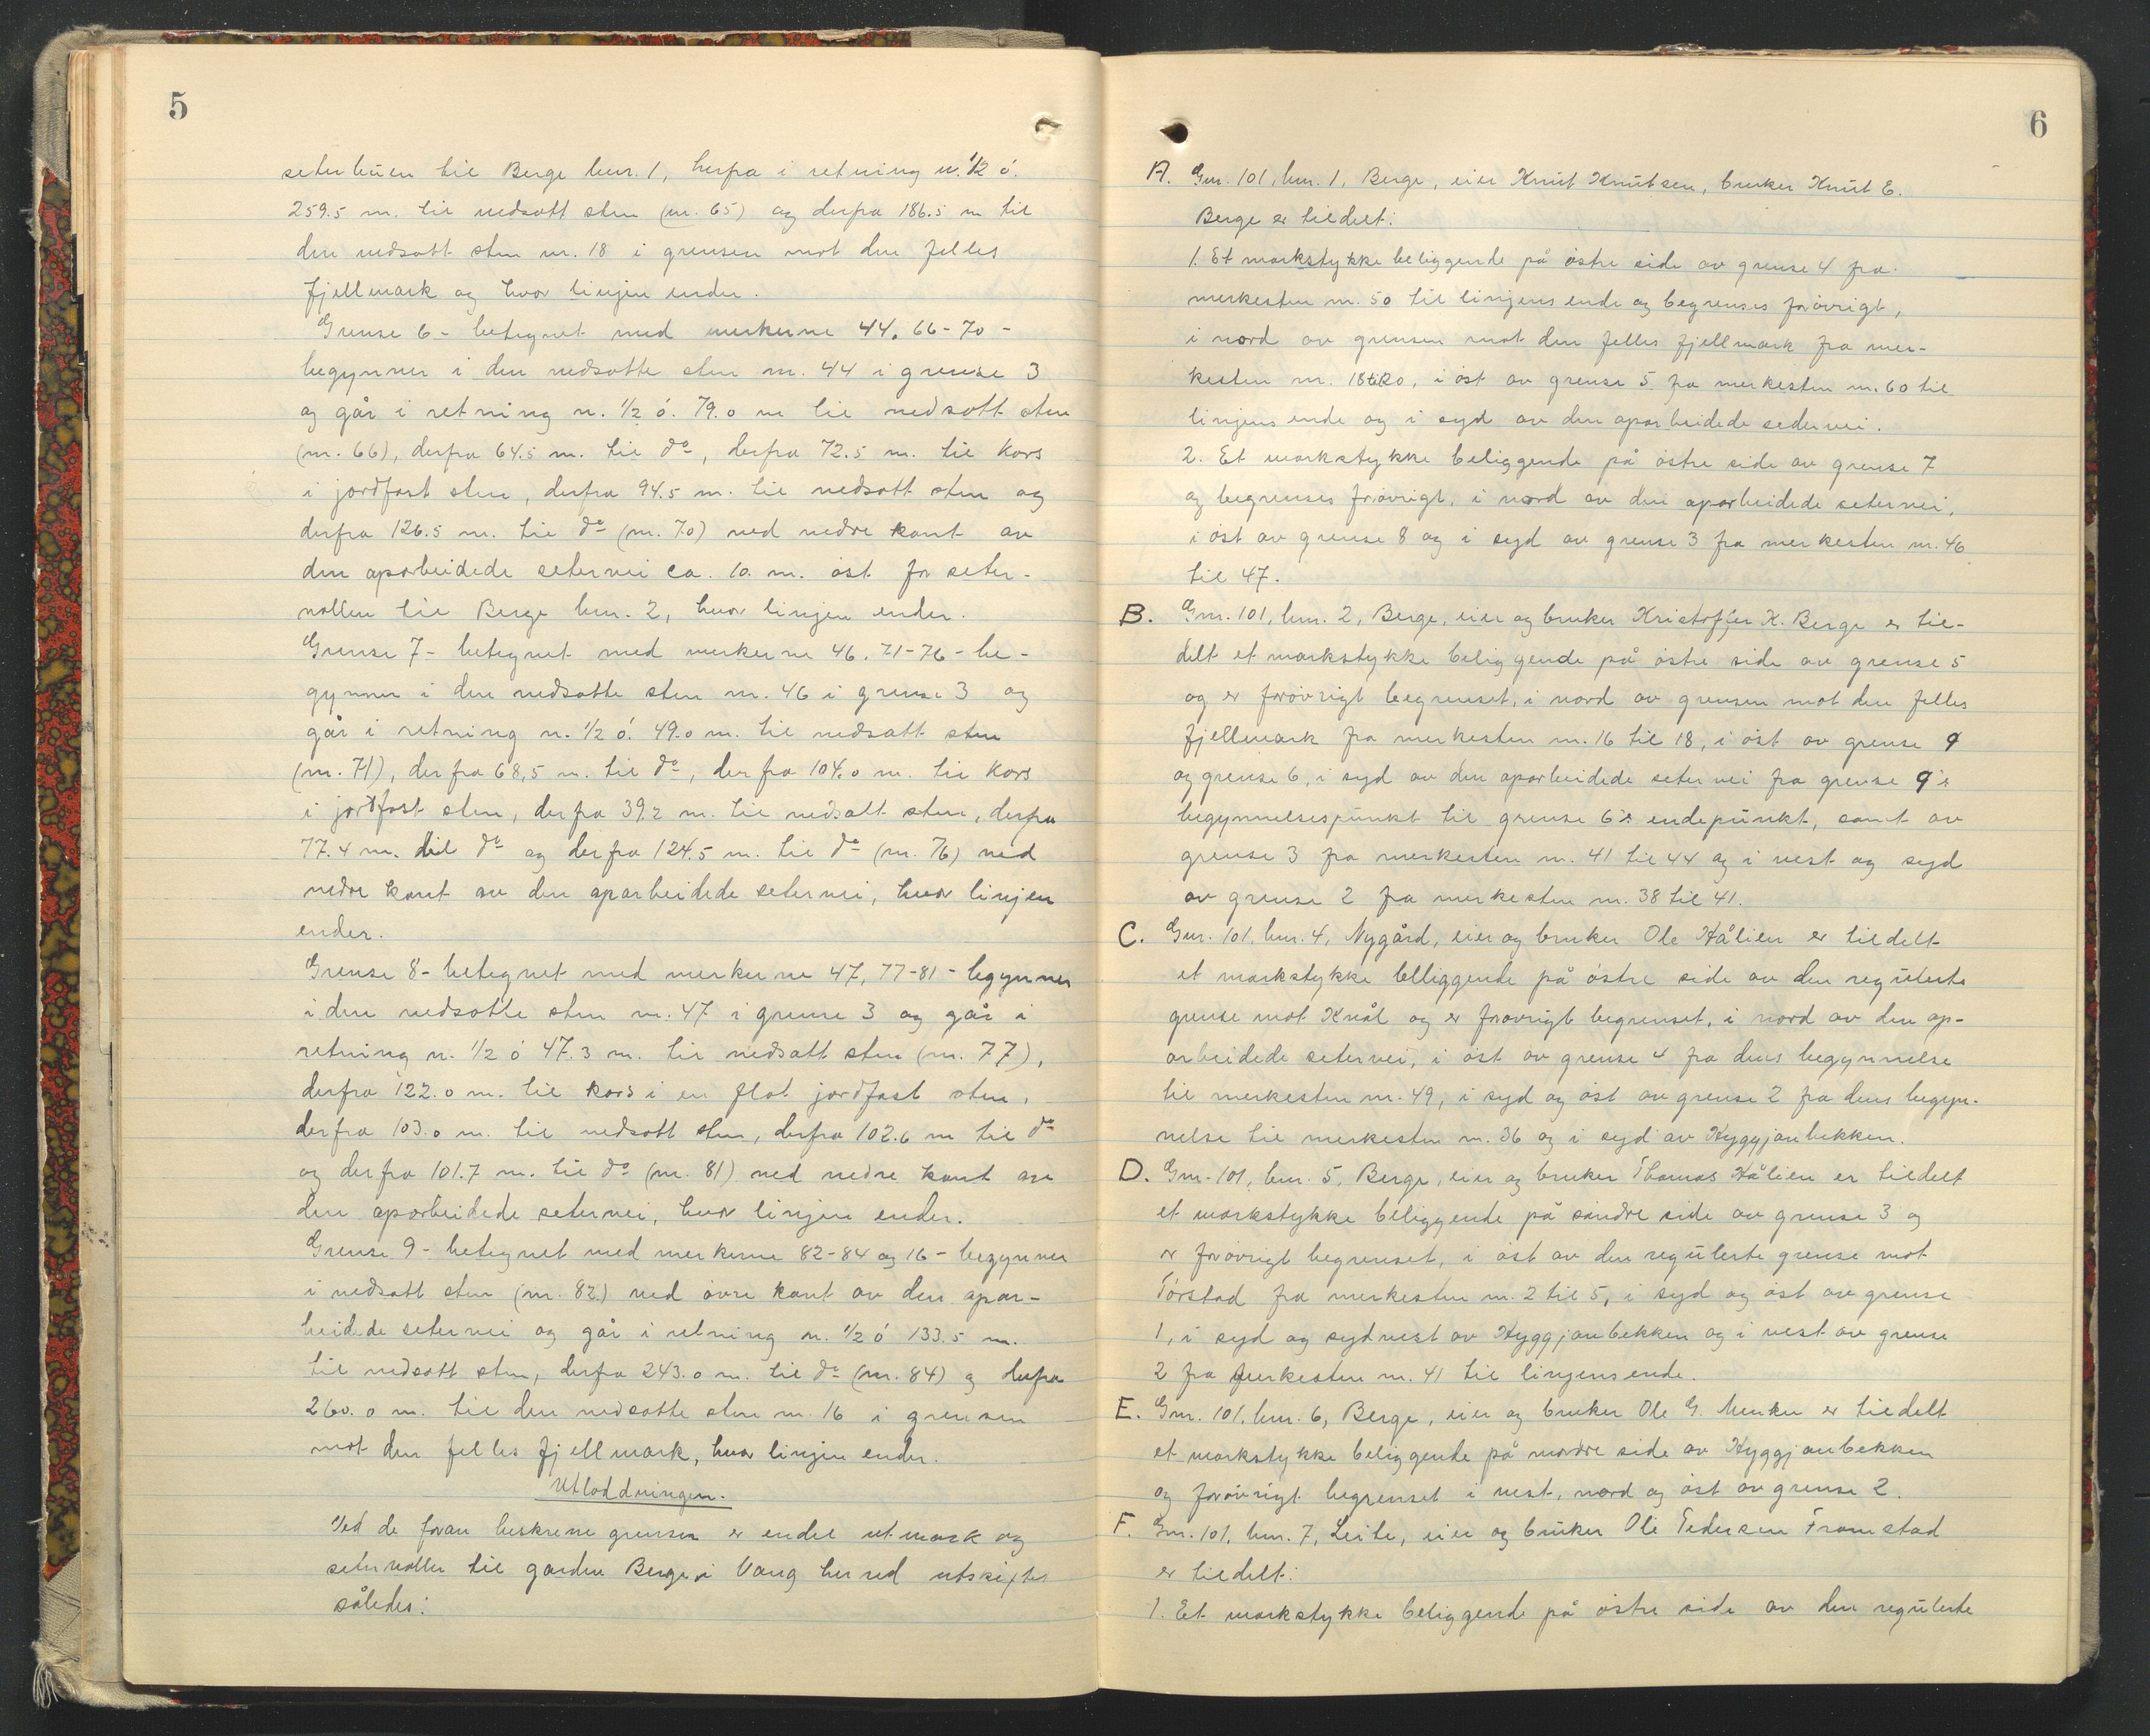 5
seterbuen til Berge bnr. 1, herfra i retning n. 1/2 ó.
259.5 m. til nedsatt sten (nr. 65) og derfra 186.5 m til
den nedsatt sten nr. 18 i grensen mot den felles
fjellmark og hvor linjen ender.
Grense 6 - betegnet med merkerne 44. 66-70 -
begynner i den nedsatte sten nr. 44 i grense 3
og går i retning n. 1/2 ó. 79.0 m til nedsatt sten
(nr. 66), derfra 64.5 m. til do, derfra 72.5 m. til kors
i jordfast sten, derfra 94.5 m. til nedsatt sten og
derfra 126.5 m. til do (nr. 70) ved nedre kant av
den oparbeidede setervei ca. 10. m. óst for seter-
vollen til Berge bnr. 2, hvor linjen ender.
Grense 7 - betegnet med merkerne 46. 71-76 - be-
gynner i den nedsatte sten nr. 46 i grense 3 og
går i retning n. 1/2 ó. 49.0 m. til nedsatt sten
(nr. 71), derfra 68,5 m. til do, derfra 104.0 m. til kors
i jordfast sten, derfra 39.2 m. til nedsatt sten, derfra
77.4 m. til do og derfra 124.5 m. til do (nr. 76) ved
nedre kant av den oparbeidede setervei, hvor linjen
ender.
Grense 8 - betegnet med merkerne 47, 77-81 - begynner
i den nedsatte sten nr. 47 i grense 3 og går i
retning n. 1/2 ó 47.3 m. til nedsatt sten (nr. 77),
derfra 122.0 m. til kors i en flat jordfast sten,
derfra 103.0 m. til nedsatt sten, derfra 102.6 m til do
og derfra 101.7 m. til do (nr. 81) ved nedre kant av
den oparbeidede setervei, hvor linjen ender.
Grense 9 - betegnet med merkerne 82-84 og 16 - begynner
i nedsatt sten (nr. 82) ved óvre kant av den opar-
beidede setervei og går i retning n. 1/2 ó 133.5 m.
til nedsatt sten, derfra 243.0 m. til do (nr. 84) og derfra
260.0 m. til den nedsatte sten nr. 16 i grensen
mot den felles fjellmark, hvor linjen ender.
Utloddningen.
Ved de foran beskrevne grenser er endel utmark og
setervoller til garden Berge i Vang herred utskiftet
således:
6
A. Gnr. 101, bnr. 1, Berge, eier Knut Knutsen, bruker Knut E.
Berge er tildelt:
1. Et markstykke beliggende på óstre side av grense 4 fra
merkesten nr. 50 til linjens ende og begrenses foróvrigt,
i nord av grensen mot den felles fjellmark fra mer-
kesten nr. 18 til 20, i óst av grense 5 fra merkesten nr. 60 til
linjens ende og i syd av den oparbeidede sedervei.
2. Et markstykke beliggende på óstre side av grense 7
og begrenses forovrigt, i nord av den oparbeidede setervei,
i óst av grense 8 og i syd av grense 3 fra merkesten nr. 46
til 47.
B. Gnr. 101, bnr. 2, Berge, eier og bruker Kristoffer K. Berge er til-
delt et markstykke beliggende på óstre side av grense 5
og er forovrigt begrenset, i nord av grensen mot den felles
fjellmark fra merkesten nr. 16 til 18, i óst av grense 9
og grense 6, i syd av den oparbeidede setervei fra grense 9's
begynnelsespunkt til grense 6's endepunkt, samt av
grense 3 fra merkesten nr. 41 til 44 og i vest og syd
av grense 2 fra merkesten nr. 38 til 41.
C. Gnr. 101, bnr. 4, Nygård, eier og bruker Ole Hålien er tildelt
et markstykke belliggende på óstre side av den regulerte
grense mot Kvål og er forovrigt begrenset, i nord av den op-
arbeidede setervei, i óst av grense 4 fra dens begynnelse
til merkesten nr. 49, i syd og óst av grense 2 fra dens begyn-
nelse til merkesten nr. 36 og i syd av Hyggjanbekken.
D. Gnr. 101, bnr. 5, Berge, eier og bruker Thomas Hålien er tildelt
et markstykke beliggende på sóndre side av grense 3 og
er forovrigt begrenset, i óst av den regulerte grense mot
Tórstad fra merkesten nr. 2 til 5, i syd og óst av grense
1, i syd og sydvest av Hyggjanbekken og i vest av grense
2 fra merkesten nr. 41 til linjens ende.
E. Gnr. 101, bnr. 6, Berge, eier og bruker Ole G. er tildelt
et markstykke beliggende på nordre side av Hyggjanbekken
og forovrigt begrenset i vest, nord og óst av grense 2.
F. Gnr. 101, bnr. 7, Leite, eier og bruker Ole Pedersen Framstad
er tildelt:
1. Et markstykke beliggende på óstre side av den regulerte